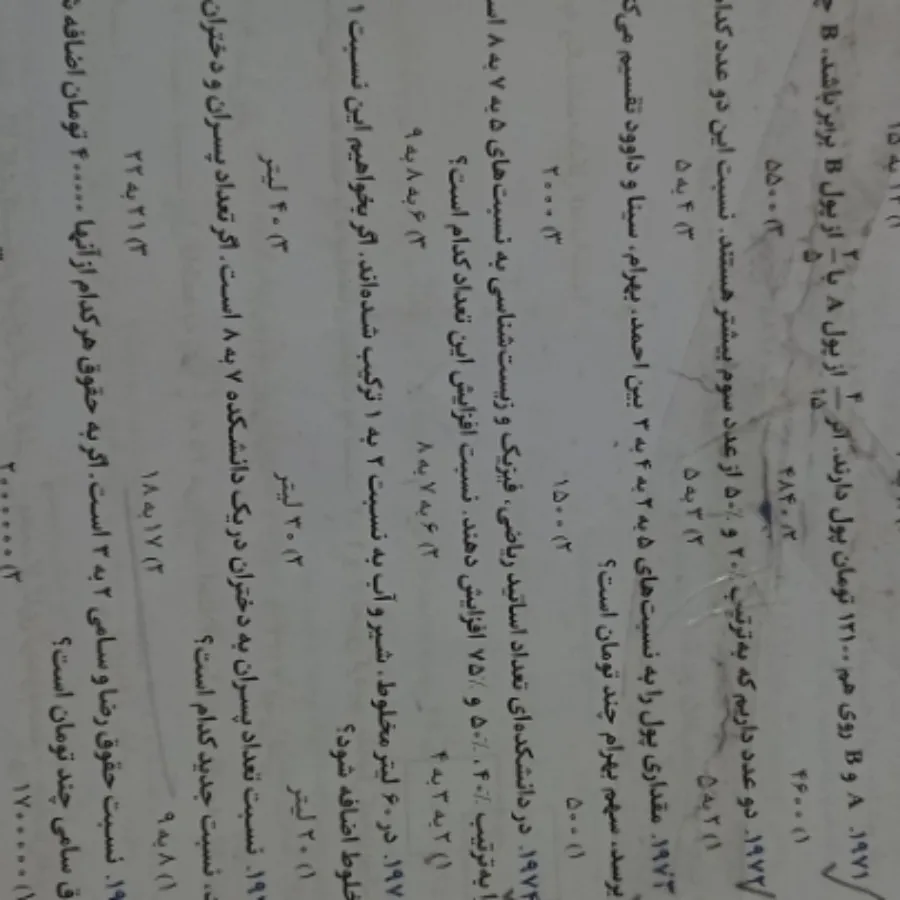 ۱) ۱۴ به ۱۵
۱۹۷۱. A و B روی هم ۱۲۱۰۰ تومان پول دارند. اگر ۴/۱۵ از پول A با ۲/۵ از پول B برابر باشد، B
۱) ۴۶۰۰ ۲) ۴۸۴۰ ۳) ۵۵۰۰
۱۹۷۲. دو عدد داریم که به‌ترتیب ۲۰٪ و ۵۰٪ از عدد سوم بیشتر هستند. نسبت این دو عدد
۱) ۲ به ۵ ۲) ۳ به ۵ ۳) ۴ به ۵
۱۹۷۳. مقداری پول را به نسبت‌های ۵ به ۲ به ۴ به ۳ بین احمد، بهرام، سینا و داوود تقسیم
برسد، سهم بهرام چند تومان است؟
۱) ۵۰۰ ۲) ۱۵۰۰ ۳) ۲۰۰۰
۱۹۷۴. در دانشکده‌ای تعداد اساتید ریاضی، فیزیک و زیست‌شناسی به نسبت‌های ۵ به ۷ به ۸
به‌ترتیب ۴۰٪، ۵۰٪ و ۷۵٪ افزایش دهند. نسبت افزایش این تعداد کدام است؟
۱) ۲ به ۳ به ۴ ۲) ۶ به ۷ به ۸ ۳) ۶ به ۸ به ۹
۱۹۷ در ۶۰ لیتر مخلوط، شیر و آب به نسبت ۲ به ۱ ترکیب شده‌اند. اگر بخواهیم این نسبت ۱
اضافه شود؟
۱) ۲۰ لیتر ۲) ۳۰ لیتر ۳) ۴۰ لیتر
۱۹. نسبت تعداد پسران به دختران در یک دانشکده ۷ به ۸ است. اگر تعداد پسران و دختران
نسبت جدید کدام است؟
۱) ۸ به ۹ ۲) ۱۷ به ۱۸ ۳) ۲۱ به ۲۲
۱۹. نسبت حقوق رضا و سامی ۲ به ۳ است. اگر به حقوق هر کدام از آنها ۴۰۰۰۰۰ تومان اضافه
سامی چند تومان است؟
۱) ۱۷۰۰۰۰۰